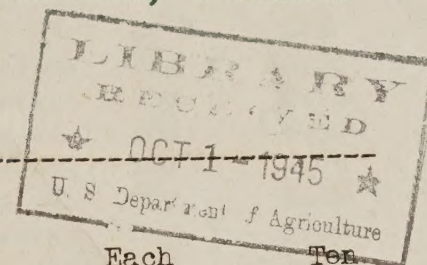 LIBRARY
RECEIVED
★ OCT 1 - 1945 ★
U. S Department of Agriculture
Each Ten